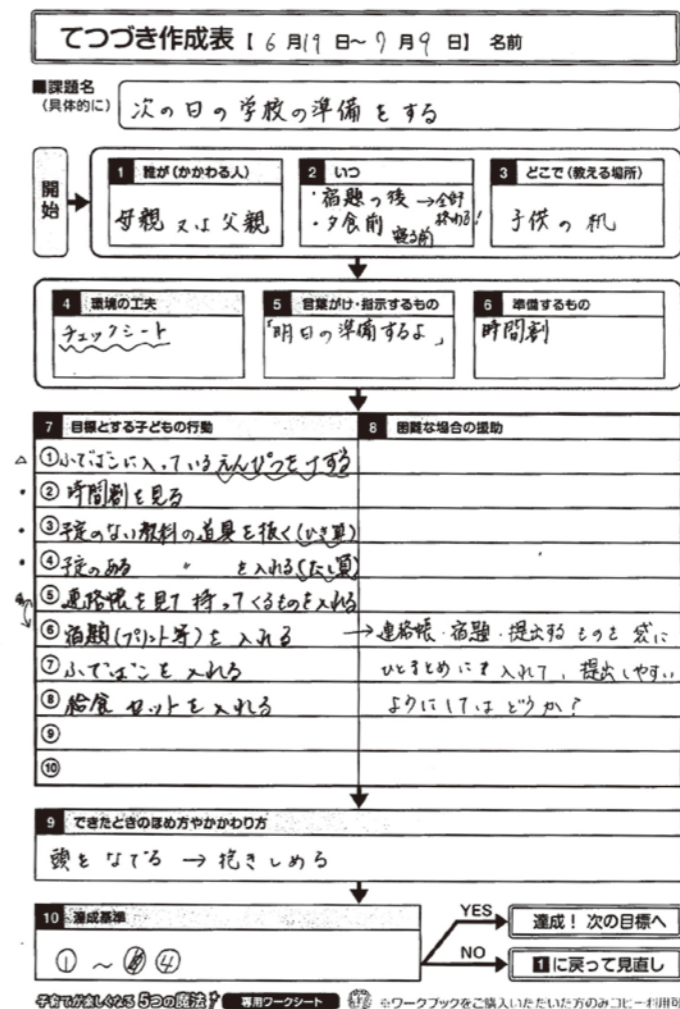 てつづき作成表【 6 月 19 日～ 7 月 9 日】 名前
■課題名
(具体的に)
次の日の学校の準備をする
開始
1 誰が(かかわる人)
母親 又は 父親
2 いつ
・宿題の後 →全部
終わる!
・夕食前
寝る前
3 どこで(教える場所)
子供の机
4 環境の工夫
チェックシート
5 言葉がけ・指示するもの
「明日の準備するよ」
6 準備するもの
時間割
7 目標とする子どもの行動
8 困難な場合の援助
△ ①ふでばこに入っているえんぴつを
・ ②時間割を見る
・ ③予定のない教科の道具を抜く(ひき算)
・ ④予定のある 〃 を入れる(たし算)
⑤連絡帳を見て持ってくるものを入れる
⑥宿題(プリント等)を入れる
→連絡帳・宿題・提出するものを袋に
⑦ふでばこを入れる
ひとまとめに入れて、提出しやすい
⑧給食セットを入れる
ようにしてはどうか?
⑨
⑩
9 できたときのほめ方やかかわり方
頭をなでる → 抱きしめる
10 達成基準
① ～ ④
YES
達成! 次の目標へ
NO
1に戻って見直し
子育てが楽しくなる 5つの魔法 専用ワークシート 37 ※ワークブックをご購入いただいた方のみコピー利用可